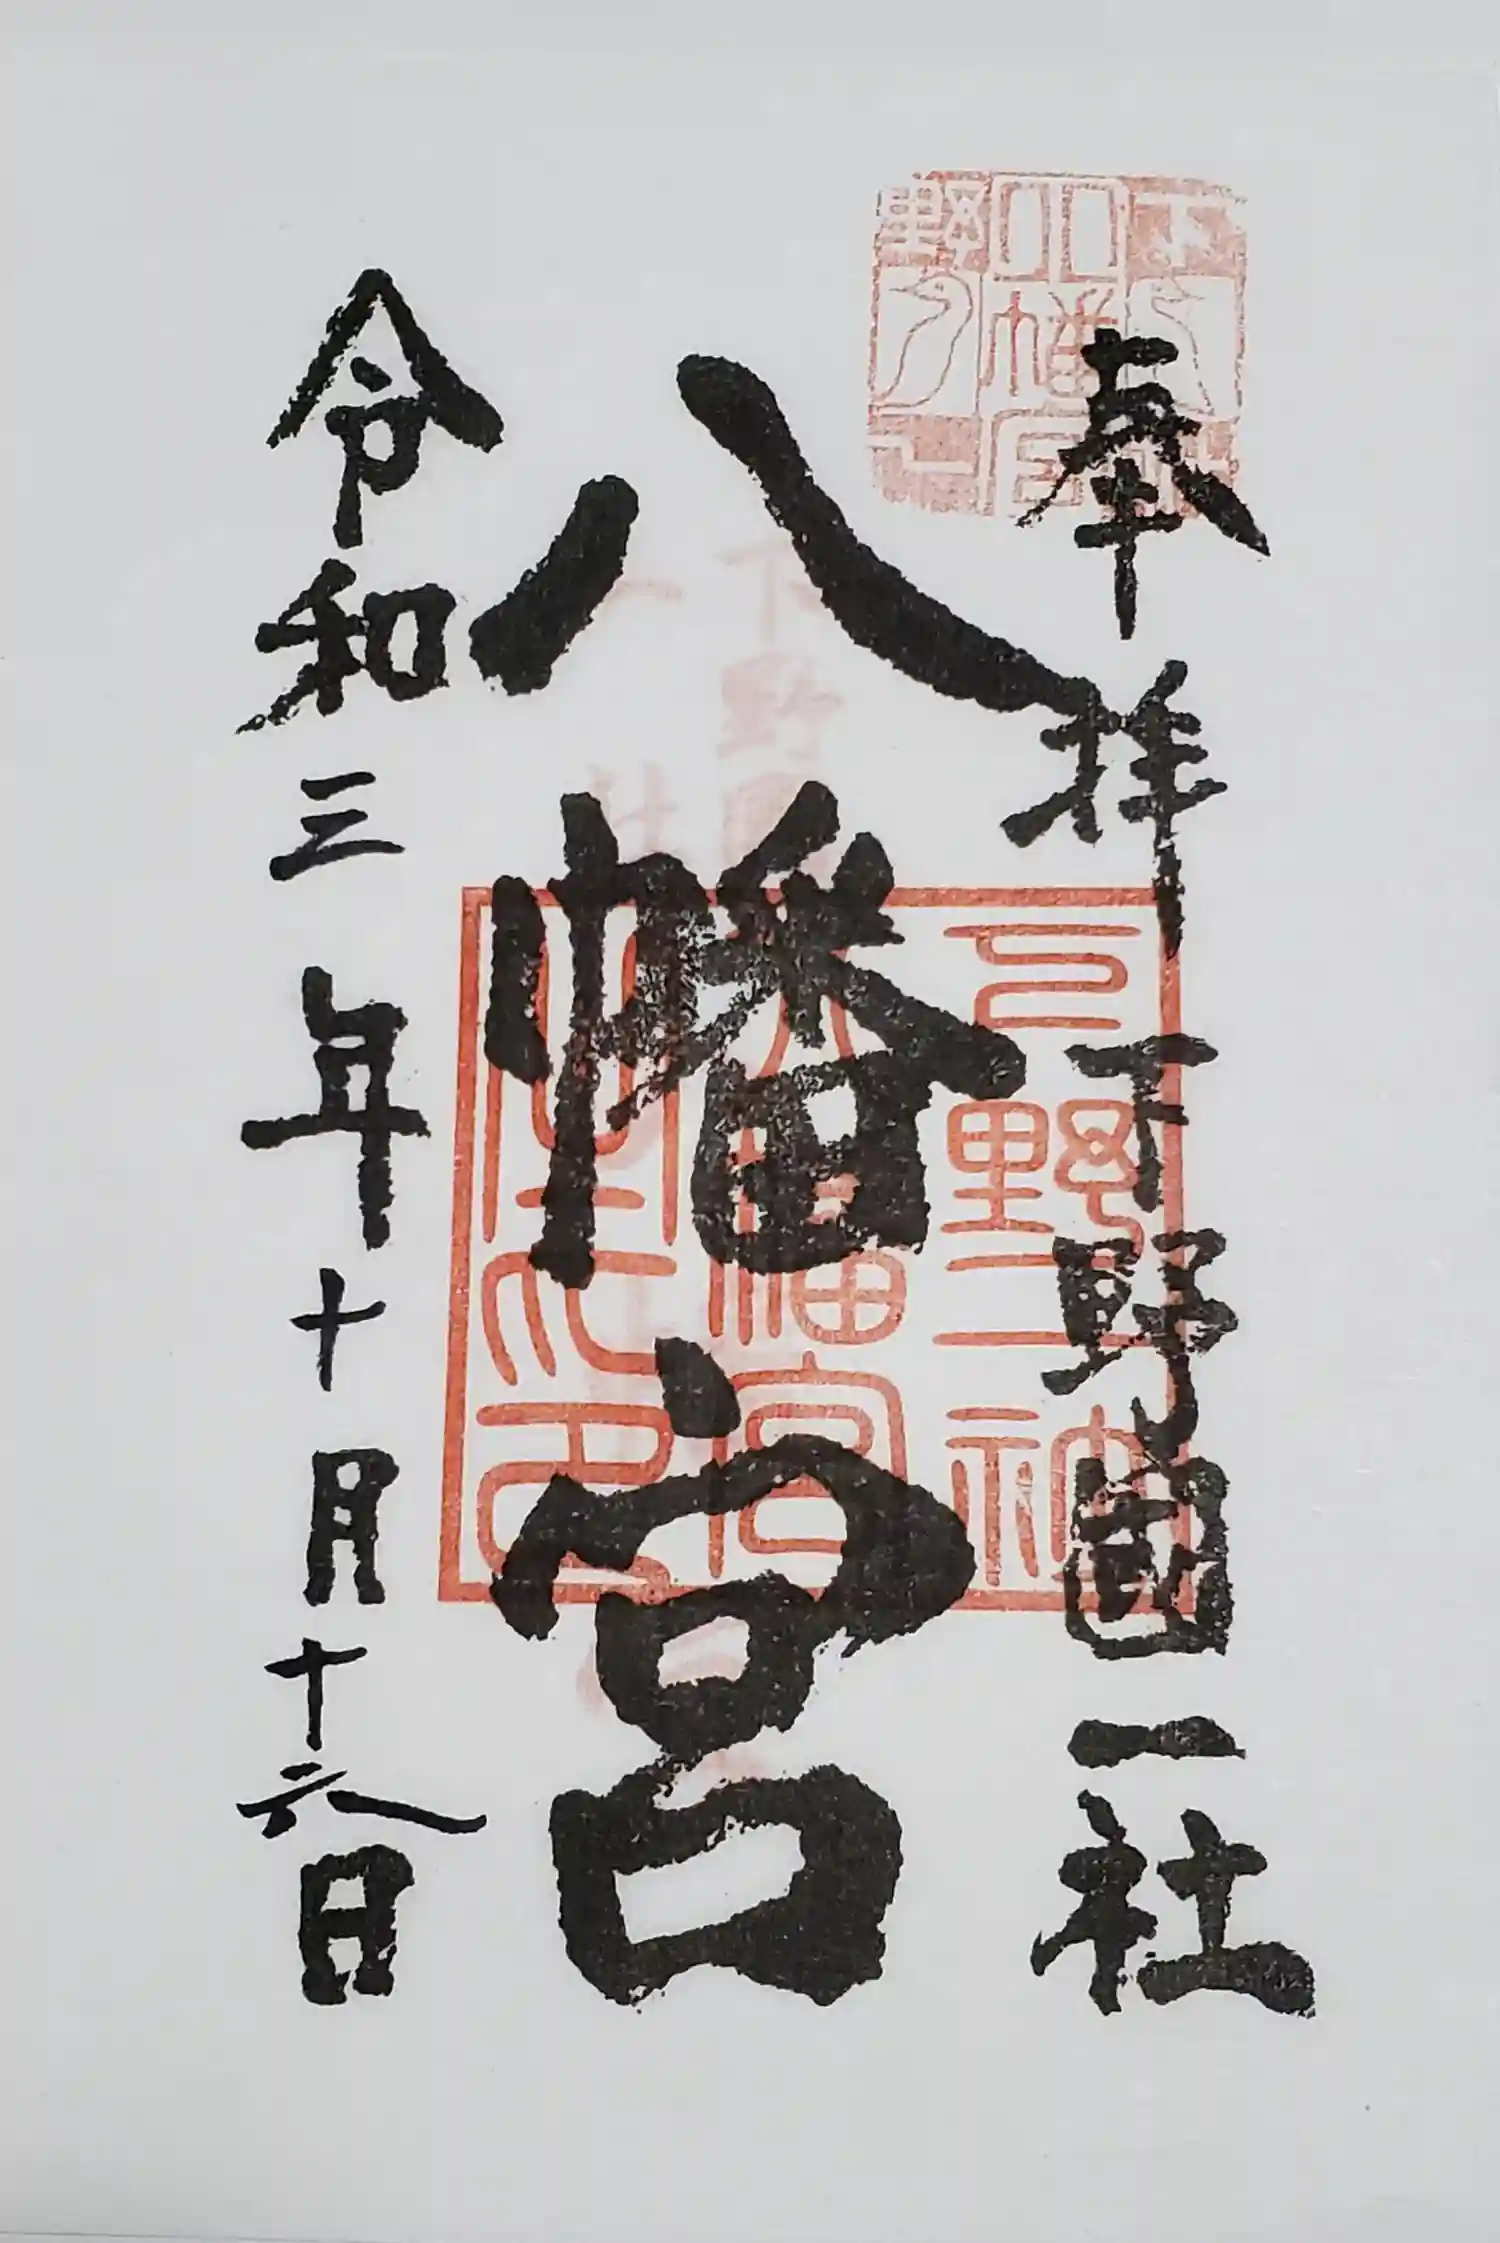 奉拝 下野國一社
八幡宮
令和三年十月十六日
下野
八幡宮
一社
下野一社
八幡宮
之印